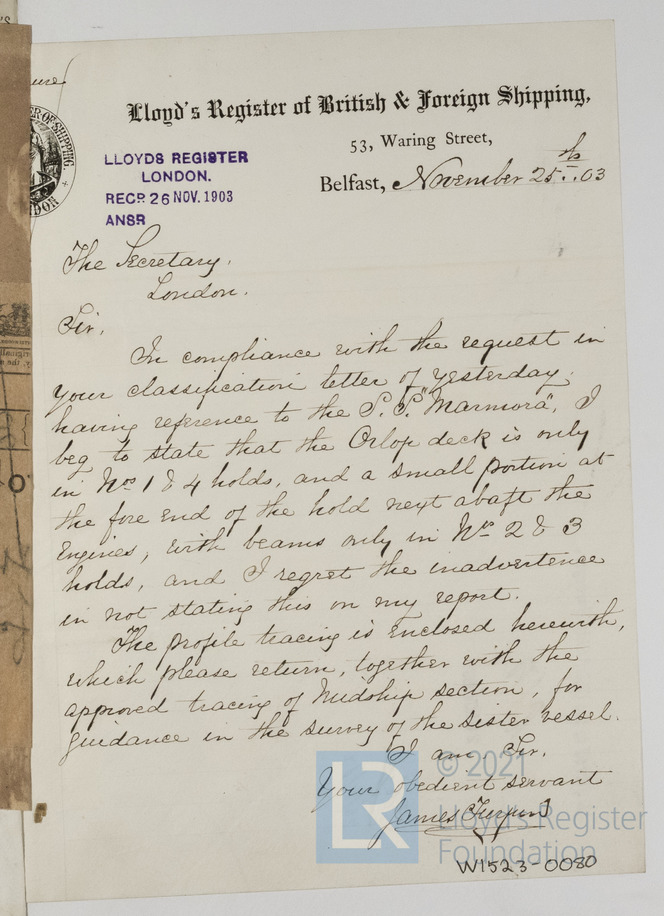 Lloyd's Register of British & Foreign Shipping,
53, Waring Street,
Belfast, November 25th..03
LLOYDS REGISTER
LONDON.
RECD. 26 NOV. 1903
ANSR
The Secretary,
London.
Sir,
In compliance with the request in
your classification letter of yesterday,
having reference to the S.S. "Marmora", I
beg to state that the Orlop deck is only
in Nos 1 & 4 holds, and a small portion at
the fore end of the hold next abaft the
Engines, with beams only in Nos 2 & 3
holds, and I regret the inadvertence
in not stating this on my report.
The profile tracing is enclosed herewith,
which please return, together with the
approved tracing of Midship section, for
guidance in the survey of the sister vessel.
I am Sir,
Your obedient servant
James Turpin
© 2021
LR
Lloyd's Register
Foundation
W1523-0080